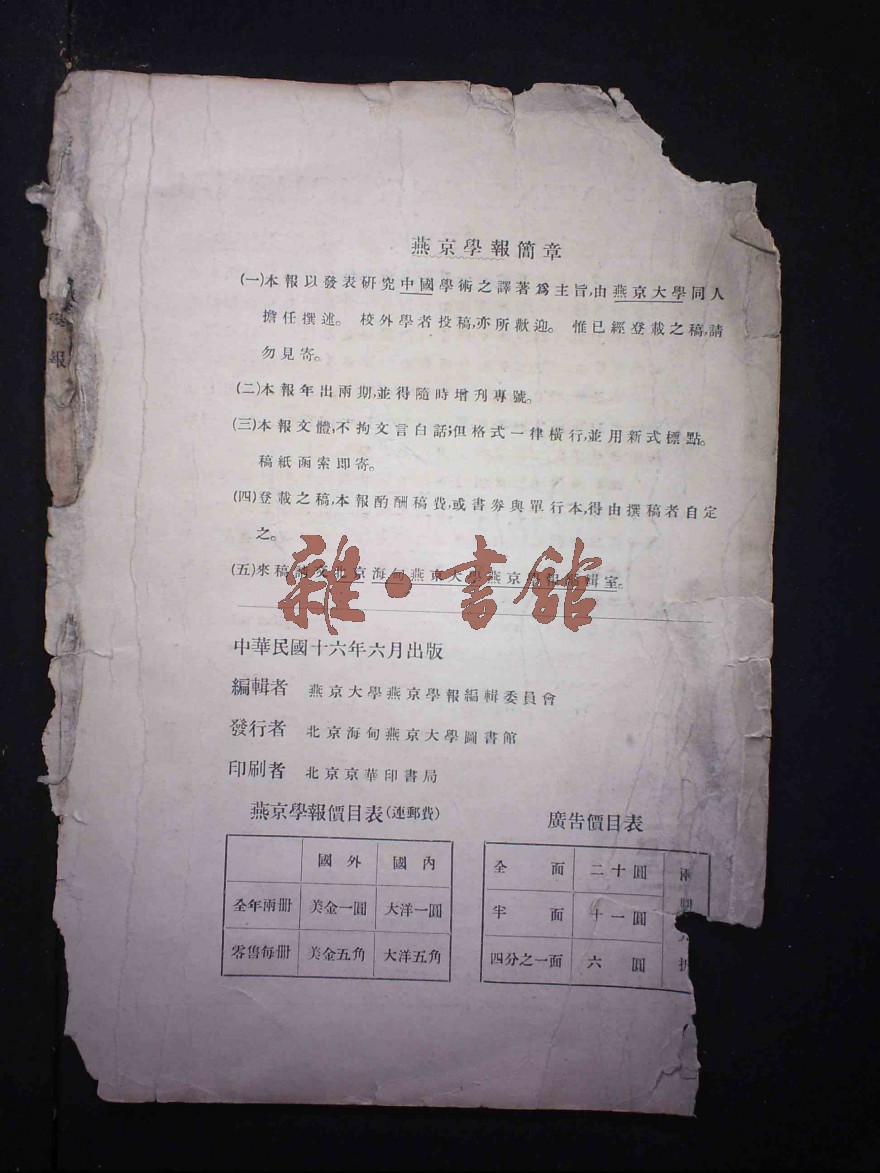 燕京學報簡章
(一)本報以發表研究中國學術之譯著爲主旨,由燕京大學同人
擔任撰述。 校外學者投稿,亦所歡迎。 惟已經登載之稿,請
勿見寄。
(二)本報年出兩期,並得隨時增刊專號。
(三)本報文體,不拘文言白話;但格式一律橫行,並用新式標點。
稿紙函索即寄。
(四)登載之稿,本報酌酬稿費,或書券與單行本,得由撰稿者自定
之。
(五)來稿請交北京海甸燕京大學燕京學報編輯室。
雜·書館
中華民國十六年六月出版
編輯者 燕京大學燕京學報編輯委員會
發行者 北京海甸燕京大學圖書館
印刷者 北京京華印書局
燕京學報價目表(連郵費)
國外 國內
全年兩册 美金一圓 大洋一圓
零售每册 美金五角 大洋五角
廣告價目表
全面 二十圓 兩
半面 十一圓
四分之一面 六圓 折
報